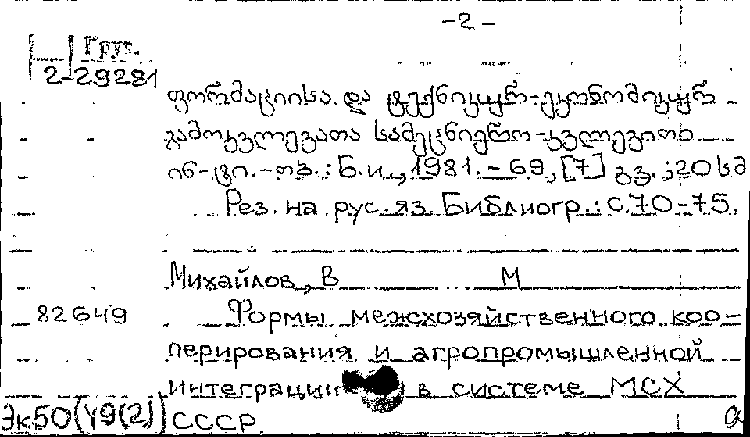 -2-
Груз.
2-29281
ფორმაციისა და ტექნიკურ-ეკონომიკურ
გამოკვლევათა სამეცნიერო-კვლევითი
ინ-ტი.-თბ.: Б.и., 1981.-69, [7] გვ.; 20 სმ
Рез. на рус. яз. Библиогр.: с.70-75.
Михайлов, В М
82649 Формы межхозяйственного коо-
перирования и агропромышленной
интеграции в системе МСХ
Эк50(49(2)) СССР.